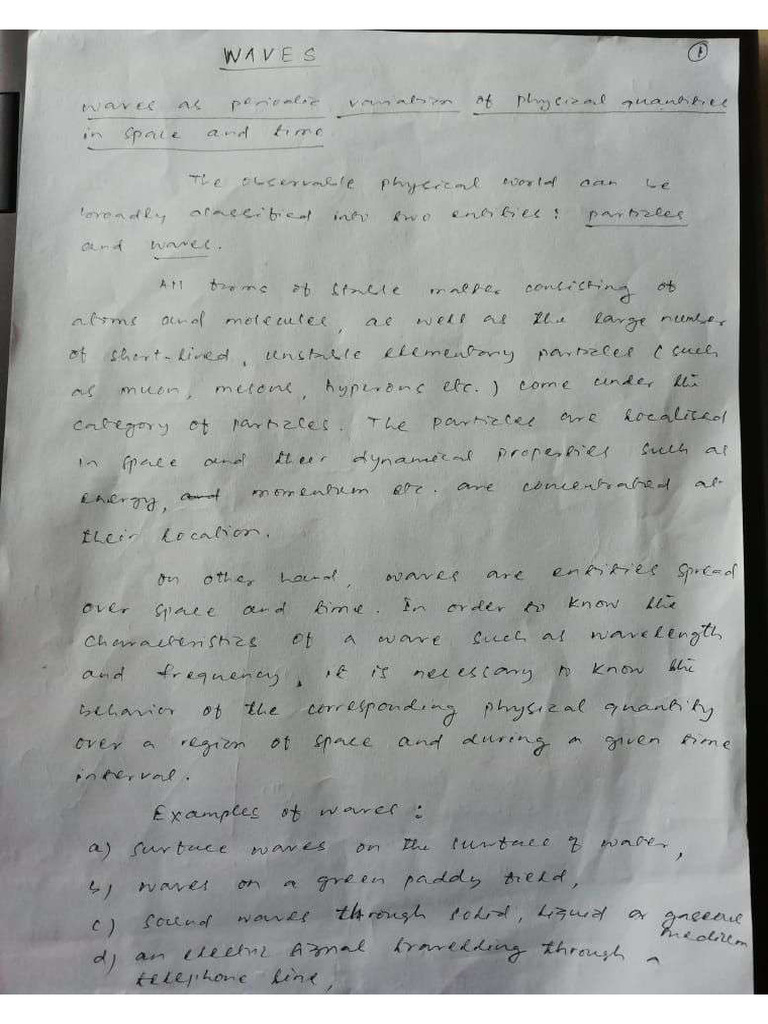 WAVES
1
Waves as periodic variation of physical quantities
in space and time
The observable physical world can be
broadly classified into two entities: particles
and waves.
All forms of stable matter consisting of
atoms and molecules, as well as the large number
of short-lived, unstable elementary particles (such
as muon, mesons, hyperons etc.) come under the
category of particles. The particles are localised
in space and their dynamical properties such as
energy, and momentum etc. are concentrated at
their location.
On other hand, waves are entities spread
over space and time. In order to know the
characteristics of a wave such as wavelength
and frequency, it is necessary to know the
behavior of the corresponding physical quantity
over a region of space and during a given time
interval.
Examples of waves:
a) surface waves on the surface of water,
b) waves on a green paddy field,
c) sound waves through solid, liquid or gaseous
medium
d) an electric signal travelling through a
telephone line,